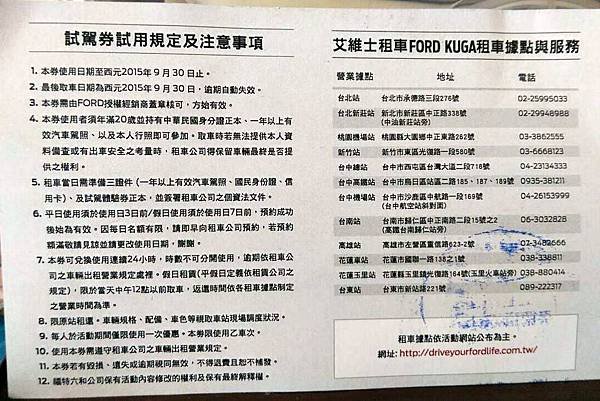 試駕券試用規定及注意事項
1. 本券使用日期至西元2015年9月30日止。
2. 最後取車日期為西元2015年9月30日,逾期自動失效。
3. 本券需由FORD授權經銷商蓋章核可,方始有效。
4. 本券使用者須年滿20歲並持有中華民國身分證正本、一年以上有
效汽車駕照、以及本人行照即可參加。取車時若無法提供本人資
料備查或有出車安全之考量時,租車公司得保留車輛最終是否提
供之權利。
5. 租車當日需準備三證件(一年以上有效汽車駕照、國民身份證、信
用卡)、及試駕體驗券正本,並簽署租車公司之個資法文件。
6. 平日使用須於使用日3日前/假日使用須於使用日7日前,預約成功
後始為有效。因每日名額有限,請即早向租車公司預約,若預約
額滿敬請見諒並請更改使用日期,謝謝。
7. 本券可兌換使用連續24小時,時數不可分開使用,逾期依租車公
司之車輛出租營業規定處裡。假日租賃(平假日定義依租賃公司之
規定),限於當天中午12點以前取車,返還時間依各租車據點制定
之營業時間為準。
8. 限原站租還。車輛規格、配備、車色等視取車站現場調度狀況。
9. 每人於活動期間僅限使用一次優惠。本券限使用乙車次。
10. 使用本券需遵守租車公司之車輛出租營業規定。
11. 本券若有毀損、遺失或逾期視同無效,不得退費且恕不補發。
12. 福特六和公司保有活動內容修改的權利及保有最終解釋權。
艾維士租車FORD KUGA租車據點與服務
營業據點 地址 電話
台北站 台北市承德路三段276號 02-25995033
台北新莊站 新北市新莊區中正路338號 02-29948988
(中油新莊站旁)
桃園機場站 桃園縣大園鄉中正東路262號 03-3862555
新竹站 新竹市東區光復路一段580號 03-6668123
台中站 台中市西屯區台灣大道二段718號 04-23134333
台中高鐵站 台中市烏日區站區二路185、187、189號 0935-381211
台中機場站 台中市沙鹿區中航路一段169號 04-26153999
(台中航空站斜對面)
台南站 台南市歸仁區中正南路二段15號之2 06-3032828
(高鐵台南歸仁站旁)
高雄站 高雄市左營區重信路623-2號 07-3482666
花蓮車站 花蓮市國聯一路138之1號 038-338811
花蓮玉里站 花蓮縣玉里鎮光復路164號(玉里火車站旁) 038-880414
台東站 台東市新站路221號 089-222317
租車據點依活動網站公布為主。
網址: http://driveyourfordlife.com.tw/